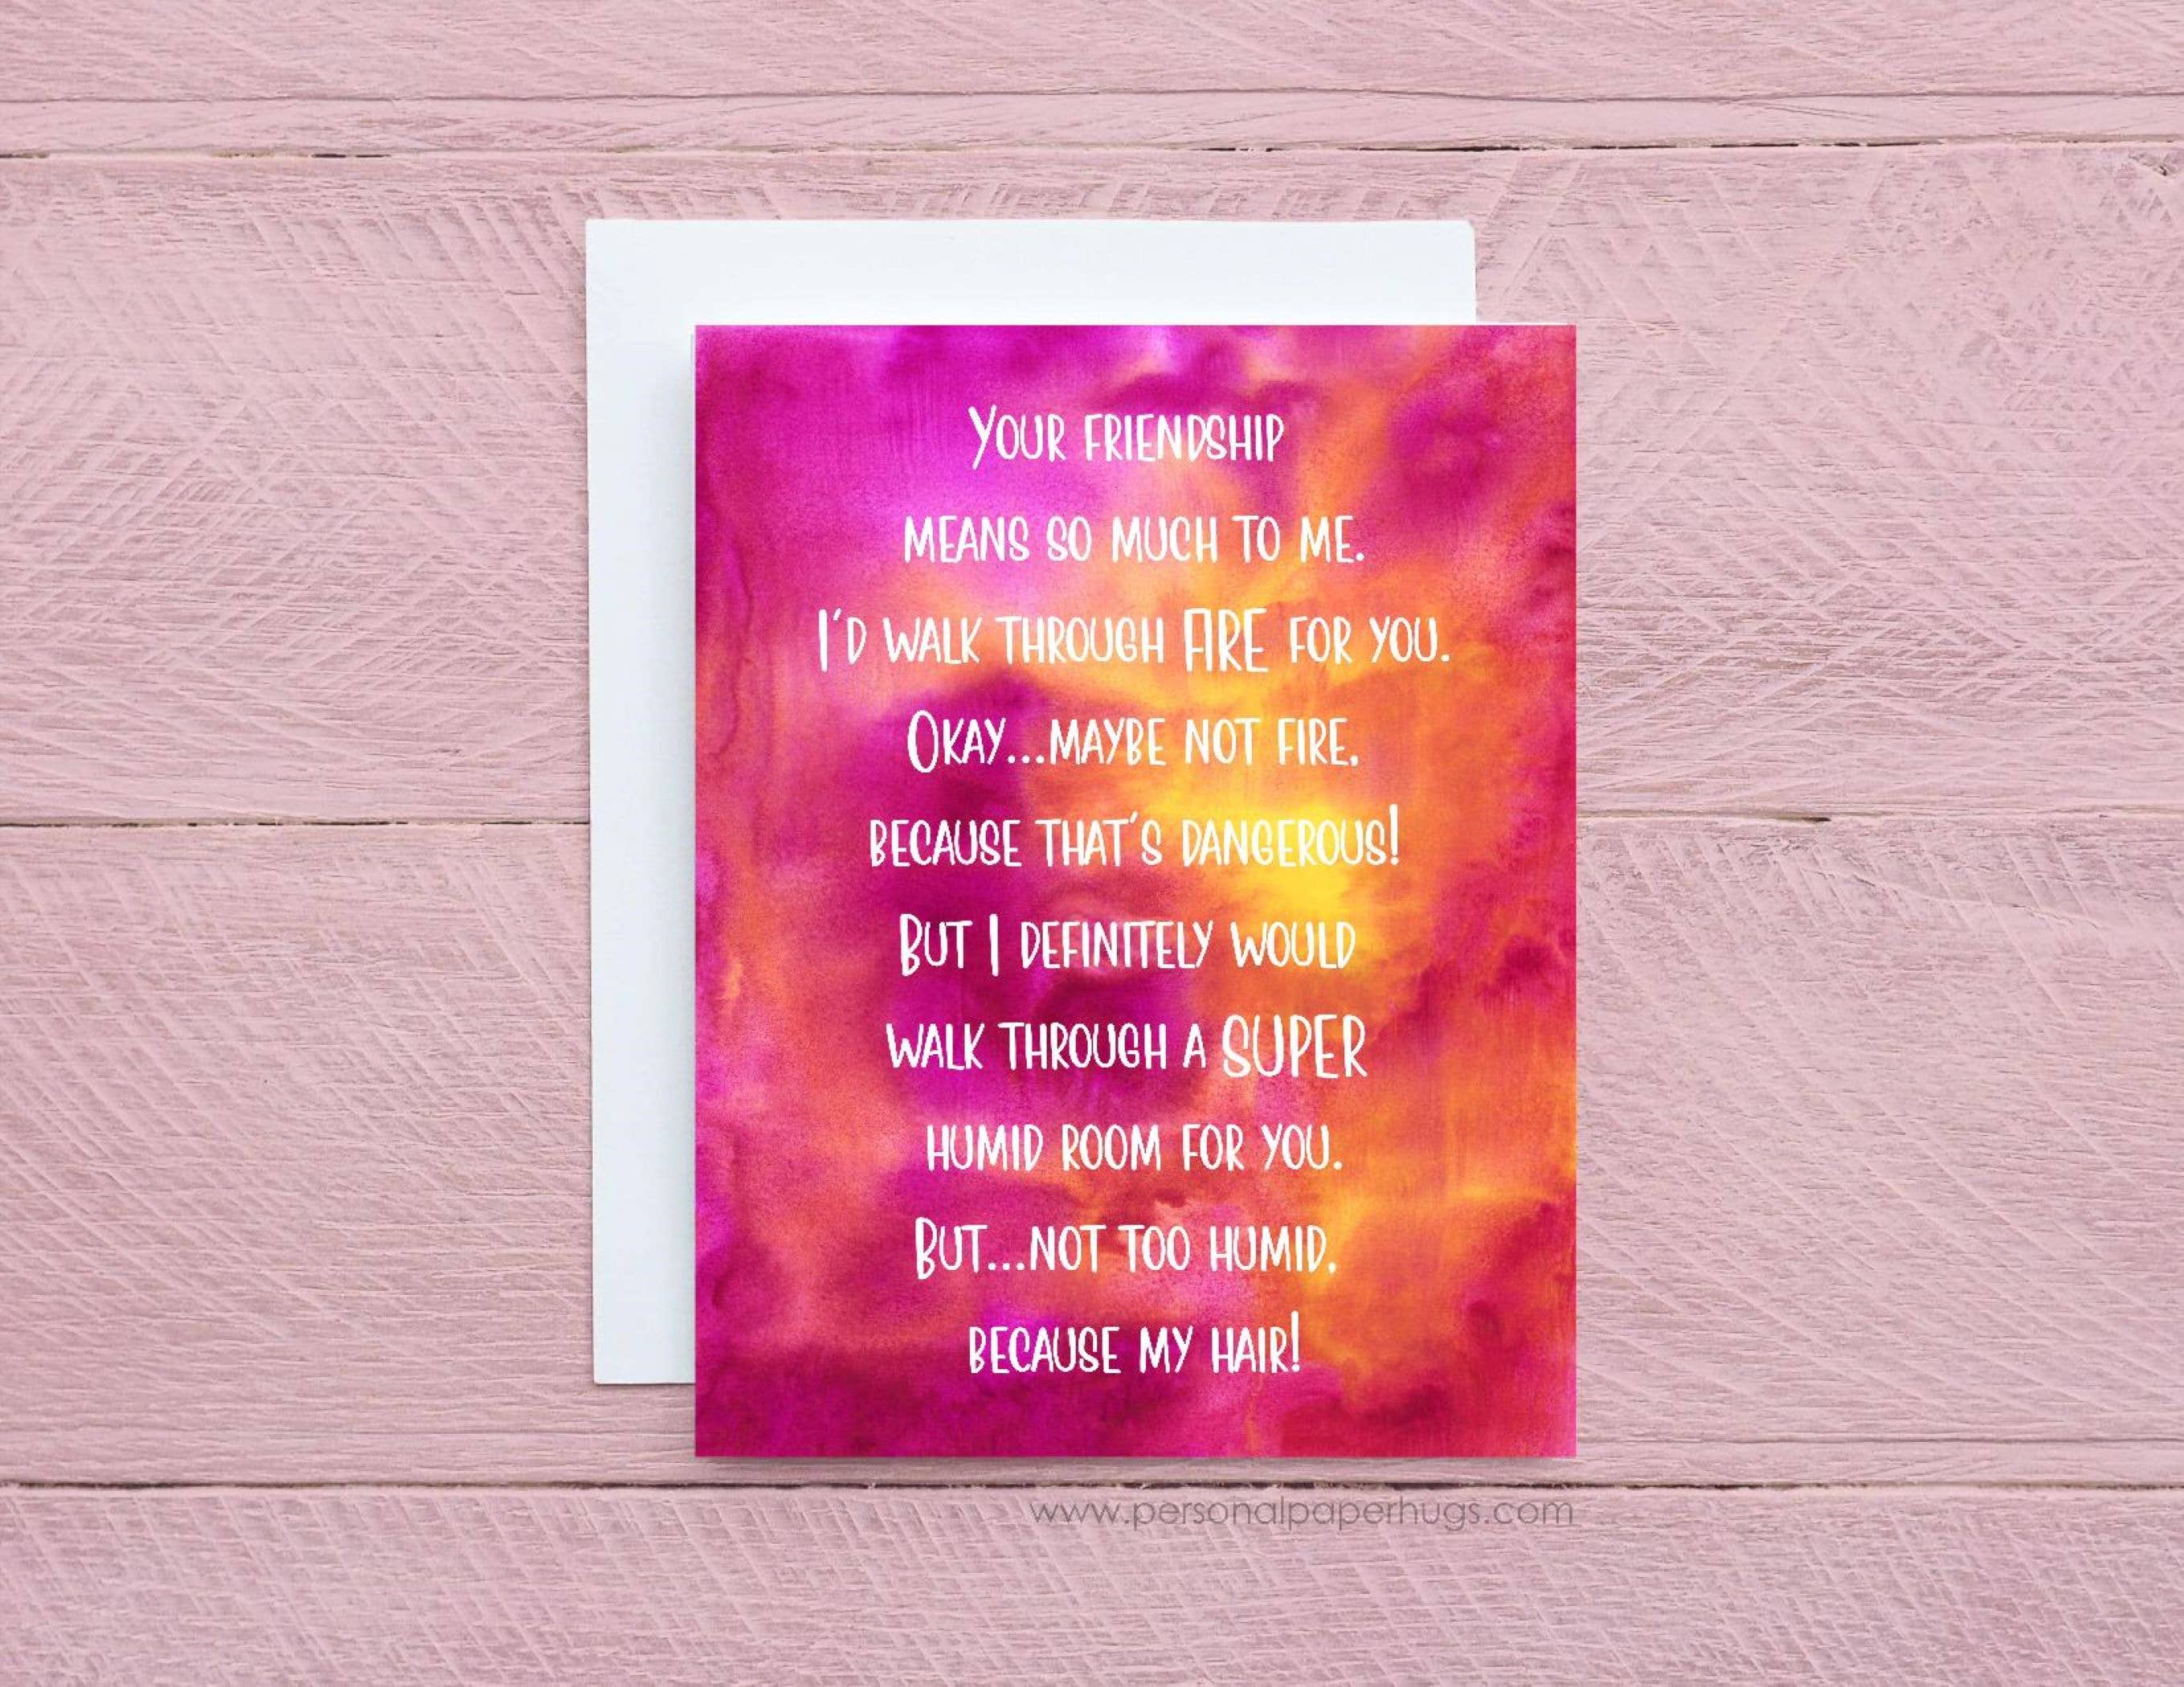 Your friendship
means so much to me.
I'd walk through FIRE for you.
Okay...maybe not fire,
because that's dangerous!
But I definitely would
walk through a SUPER
humid room for you.
But...not too humid,
because my hair!
www.personalpaperhugs.com